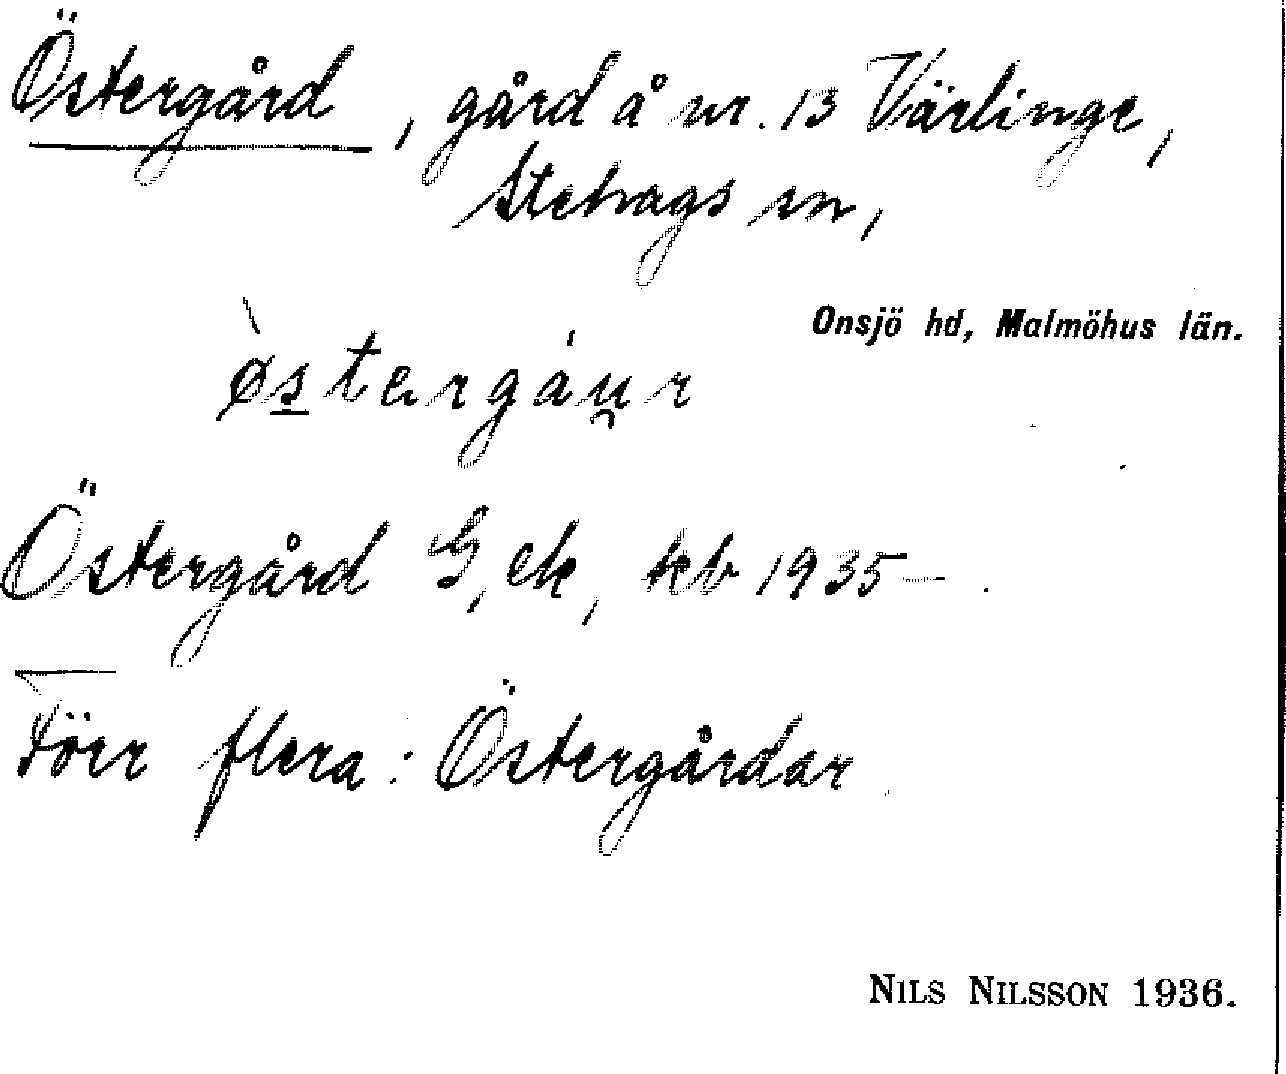 Östergård, gård å nr. 13 Värlinge,
Stehags sn,
Onsjö hd, Malmöhus län.
ø̀s̲tərgáu̯r
Östergård G, ek, kb 1935–.
Förr flera: Östergårdar
NILS NILSSON 1936.